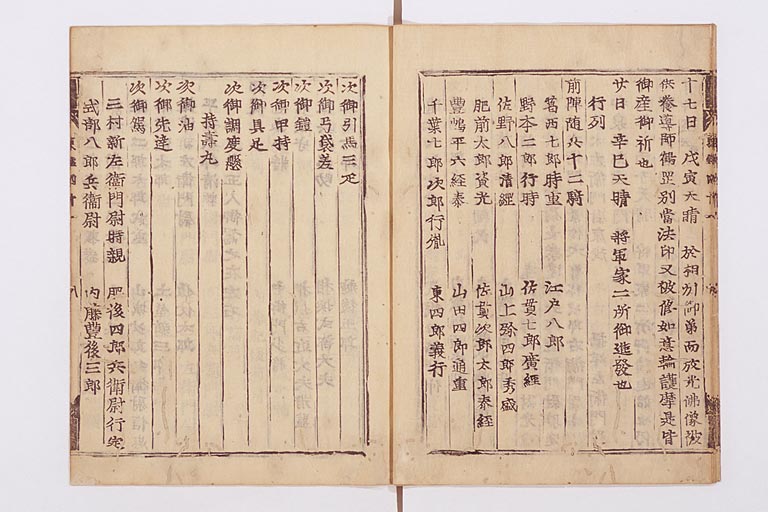 十七日 戊寅天晴 於相州御第而放光佛像被
供養導師鶴罡別當法印又被修如意輪護摩是皆
御産御祈也
廿日 辛巳天晴 將軍家二所御進發也
行列
前陣随兵十二騎
葛西七郎時重 江戸八郎
野本二郎行時 佐貫七郎廣經
佐野八郎清經 山上弥四郎秀盛
肥前太郎資光 佐貫次郎太郎泰經
豊嶋平六經泰 山田四郎通重
千葉七郎次郎行胤 東四郎義行
次御引馬三疋
次御弓袋差
次御鎧
次御甲持
次御具足
次御調度懸
持壽丸
次御油
次御先達
次御駕
三村新左衛門尉時親 肥後四郎兵衛尉行定
式部八郎兵衛尉 内藤豊後三郎